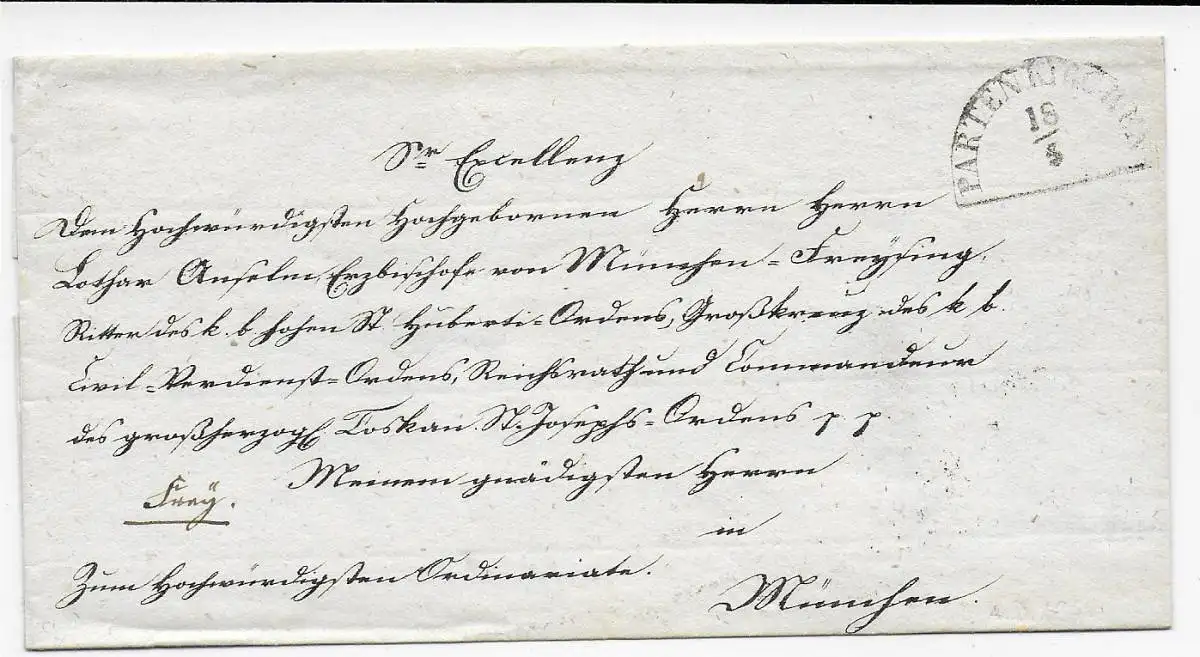 PARTENKIRCHEN
18
Sr Excellenz
Dem Hochwürdigsten Hochgebornen Herrn Herrn
Lothar Anselm, Erzbischofe von München=Freysing,
Ritter des k. b. hohen St Huberti=Ordens, Großkreuz des k b.
Civil=Verdienst=Ordens, Reichsrath und Commandeur
des großherzogl Toskan. St. Josephs=Ordens p. p.
Meinem gnädigsten Herrn
Frey.
in
Zum Hochwürdigsten Ordinariate.
München.